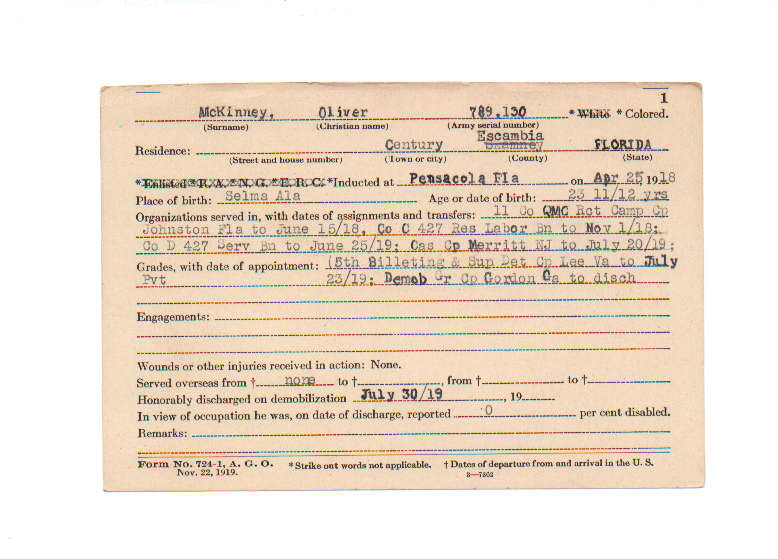 1
McKinney, Oliver 789.130 * White * Colored.
(Surname) (Christian name) (Army serial number)
Escambia
Residence: Century FLORIDA
(Street and house number) (Town or city) (County) (State)
*Enlisted * R. A. * N. G. * E. R. C. *Inducted at Pensacola Fla on Apr 25 1918
Place of birth: Selma Ala Age or date of birth: 23 11/12 yrs
Organizations served in, with dates of assignments and transfers: 11 Co QMC Rct Camp Cp
Johnston Fla to June 15/18, Co C 427 Res Labor Bn to Nov 1/18;
Co D 427 Serv Bn to June 25/19; Cas Cp Merritt NJ to July 20/19;
Grades, with date of appointment: (5th Billeting & Sup Det Cp Lee Va to July
Pvt 23/19; Demob Gr Cp Gordon Ga to disch
Engagements:
Wounds or other injuries received in action: None.
Served overseas from † none to †, from † to †
Honorably discharged on demobilization July 30/19, 19
In view of occupation he was, on date of discharge, reported 0 per cent disabled.
Remarks:
Form No. 724-1, A. G. O. *Strike out words not applicable. † Dates of departure from and arrival in the U. S.
Nov. 22, 1919. 3—7302